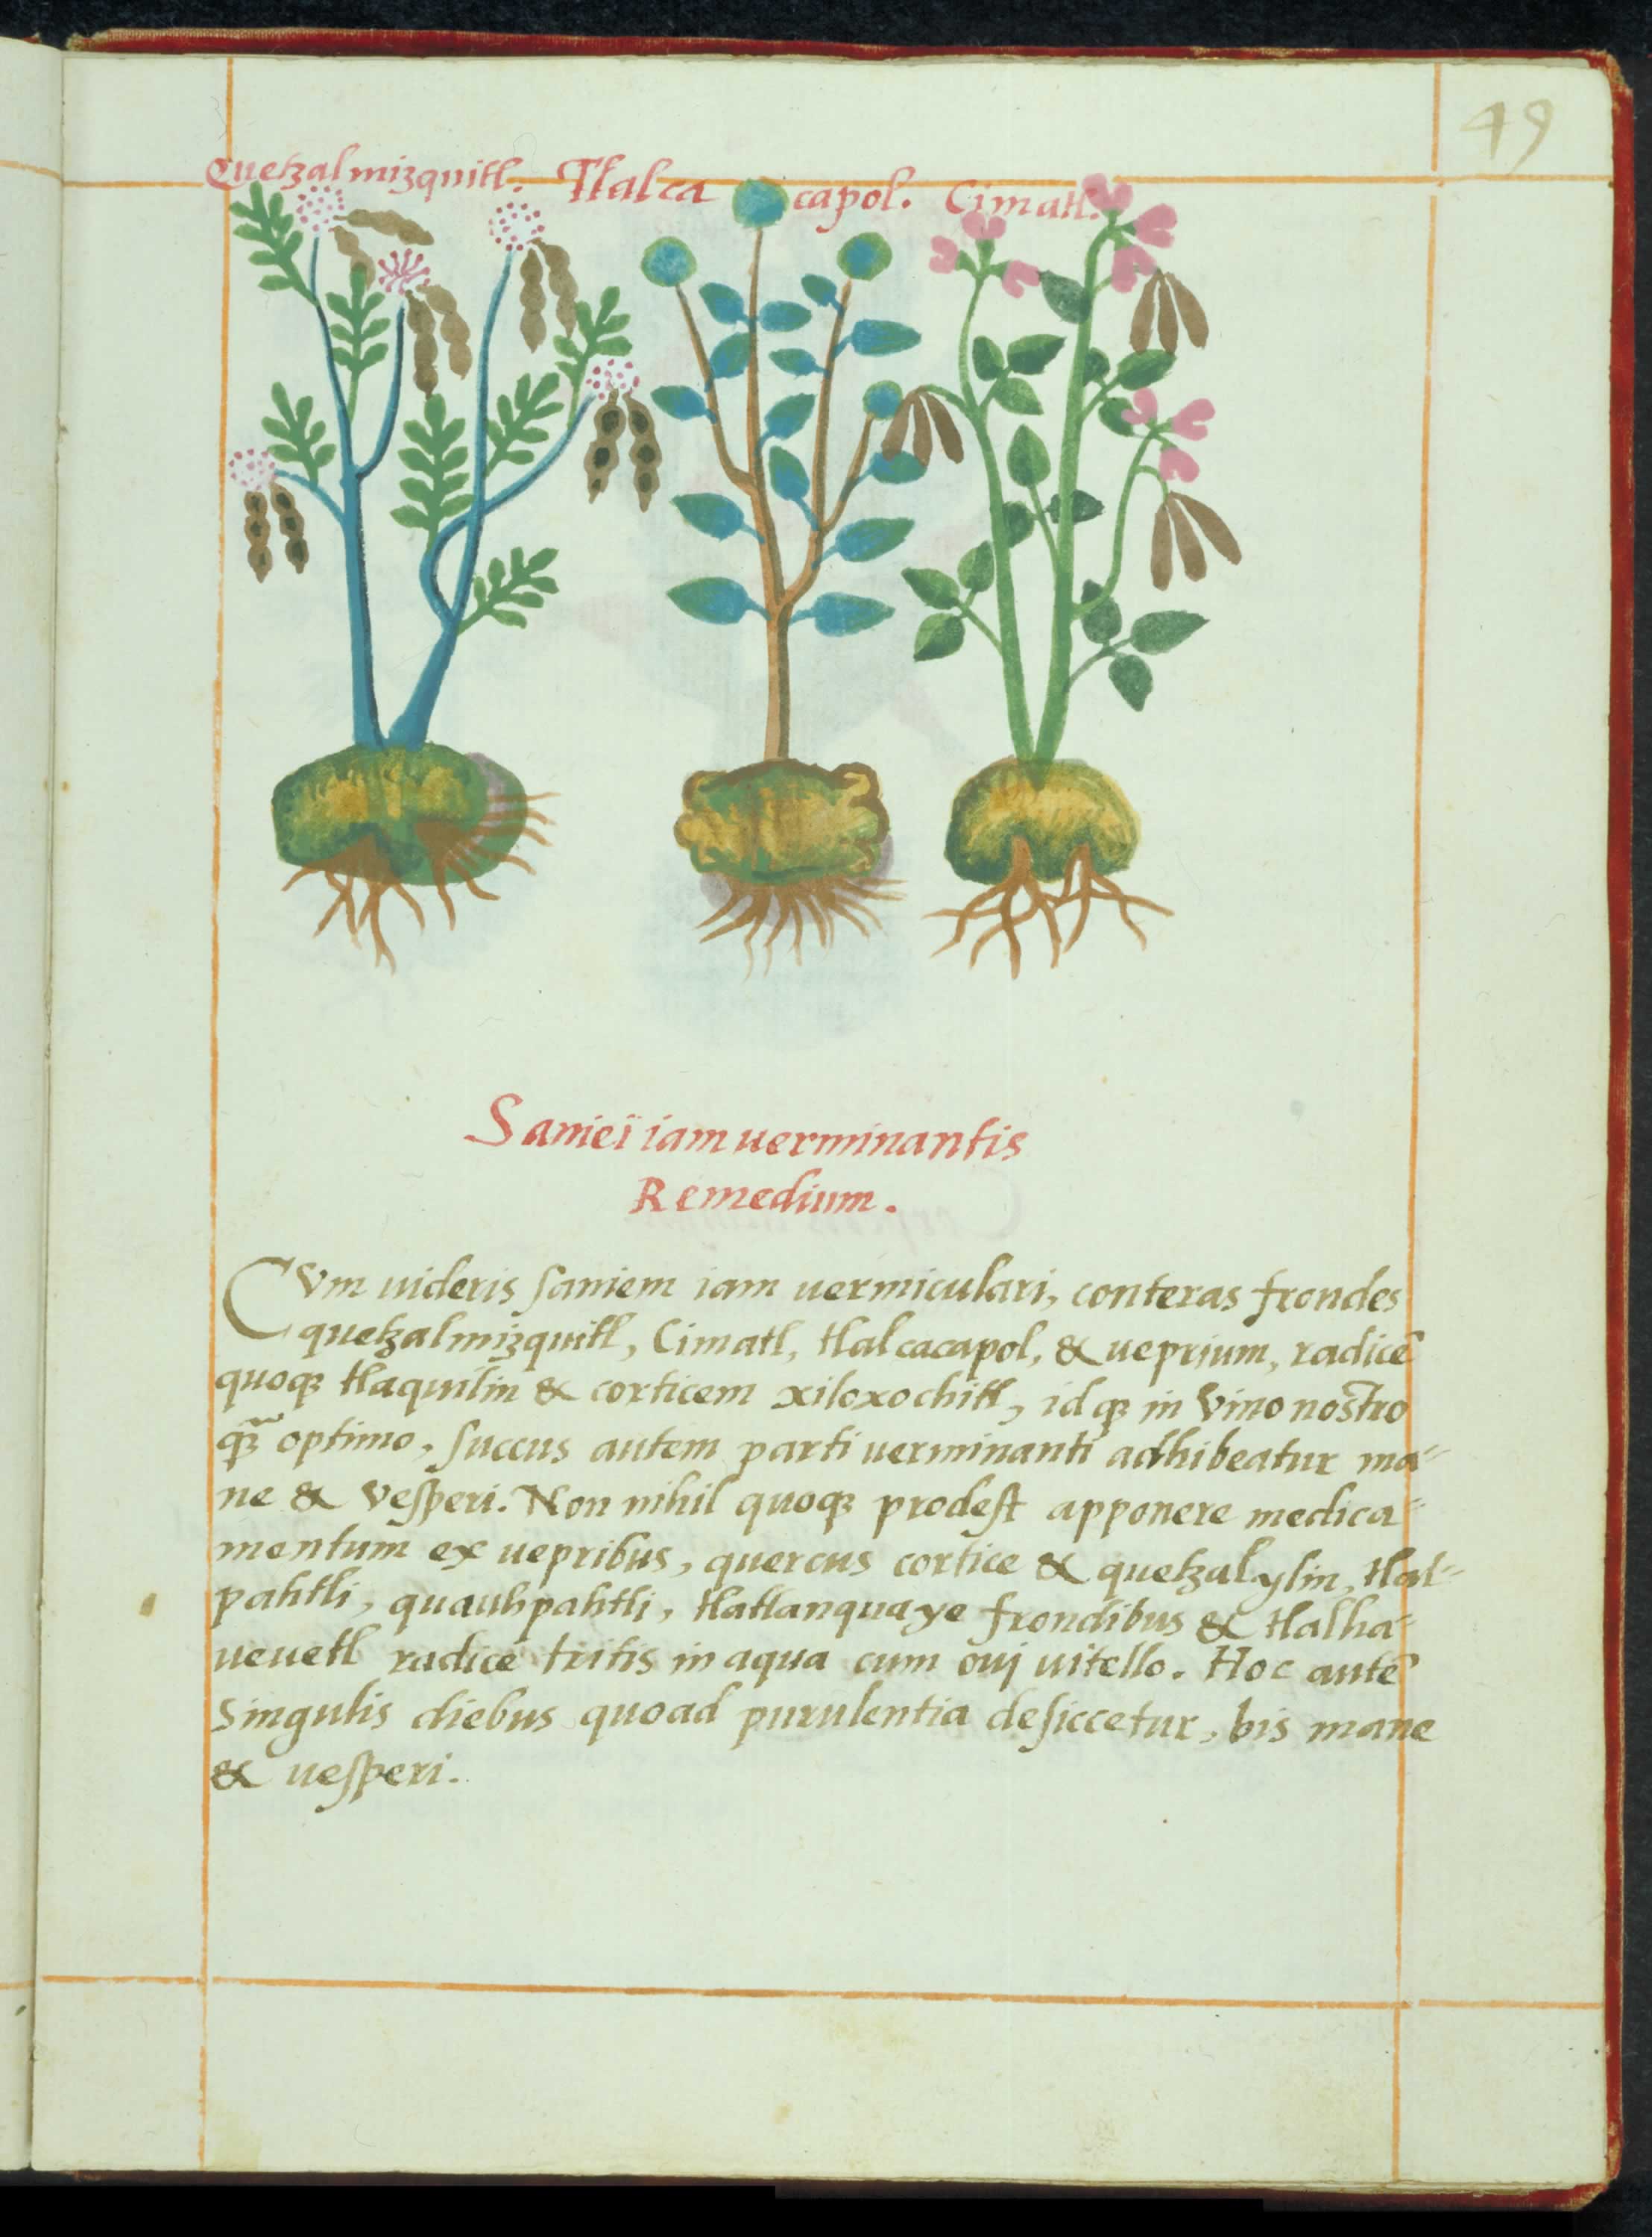 49
Quetzalmizquitl. Tlalcacapol. Cimatl.
Sanieï iam uerminantis
Remedium.
CVm uideris ſaniem iam uermiculari, conteras frondes
quetzalmizquitl, Cimatl, tlalcacapol, & ueprium, radicē
quoq₃ tlaquilin & corticem xiloxochitl, id q₃ in Vino nostro
q̃₃ optimo, ſuccus autem parti uerminanti adhibeatur ma-
ne & Veſperi. Non nihil quoq₃ prodeſt apponere medica-
mentum ex uepribus, quercus cortice & quetzalylin, tlal-
pahtli, quauhpahtli, tlatlanquaye frondibus & tlalha-
ueuetl radice tritis in aqua cum ouj uitello. Hoc autē
Singulis diebus quoad purulentia deſiccetur, bis mane
& ueſperi.